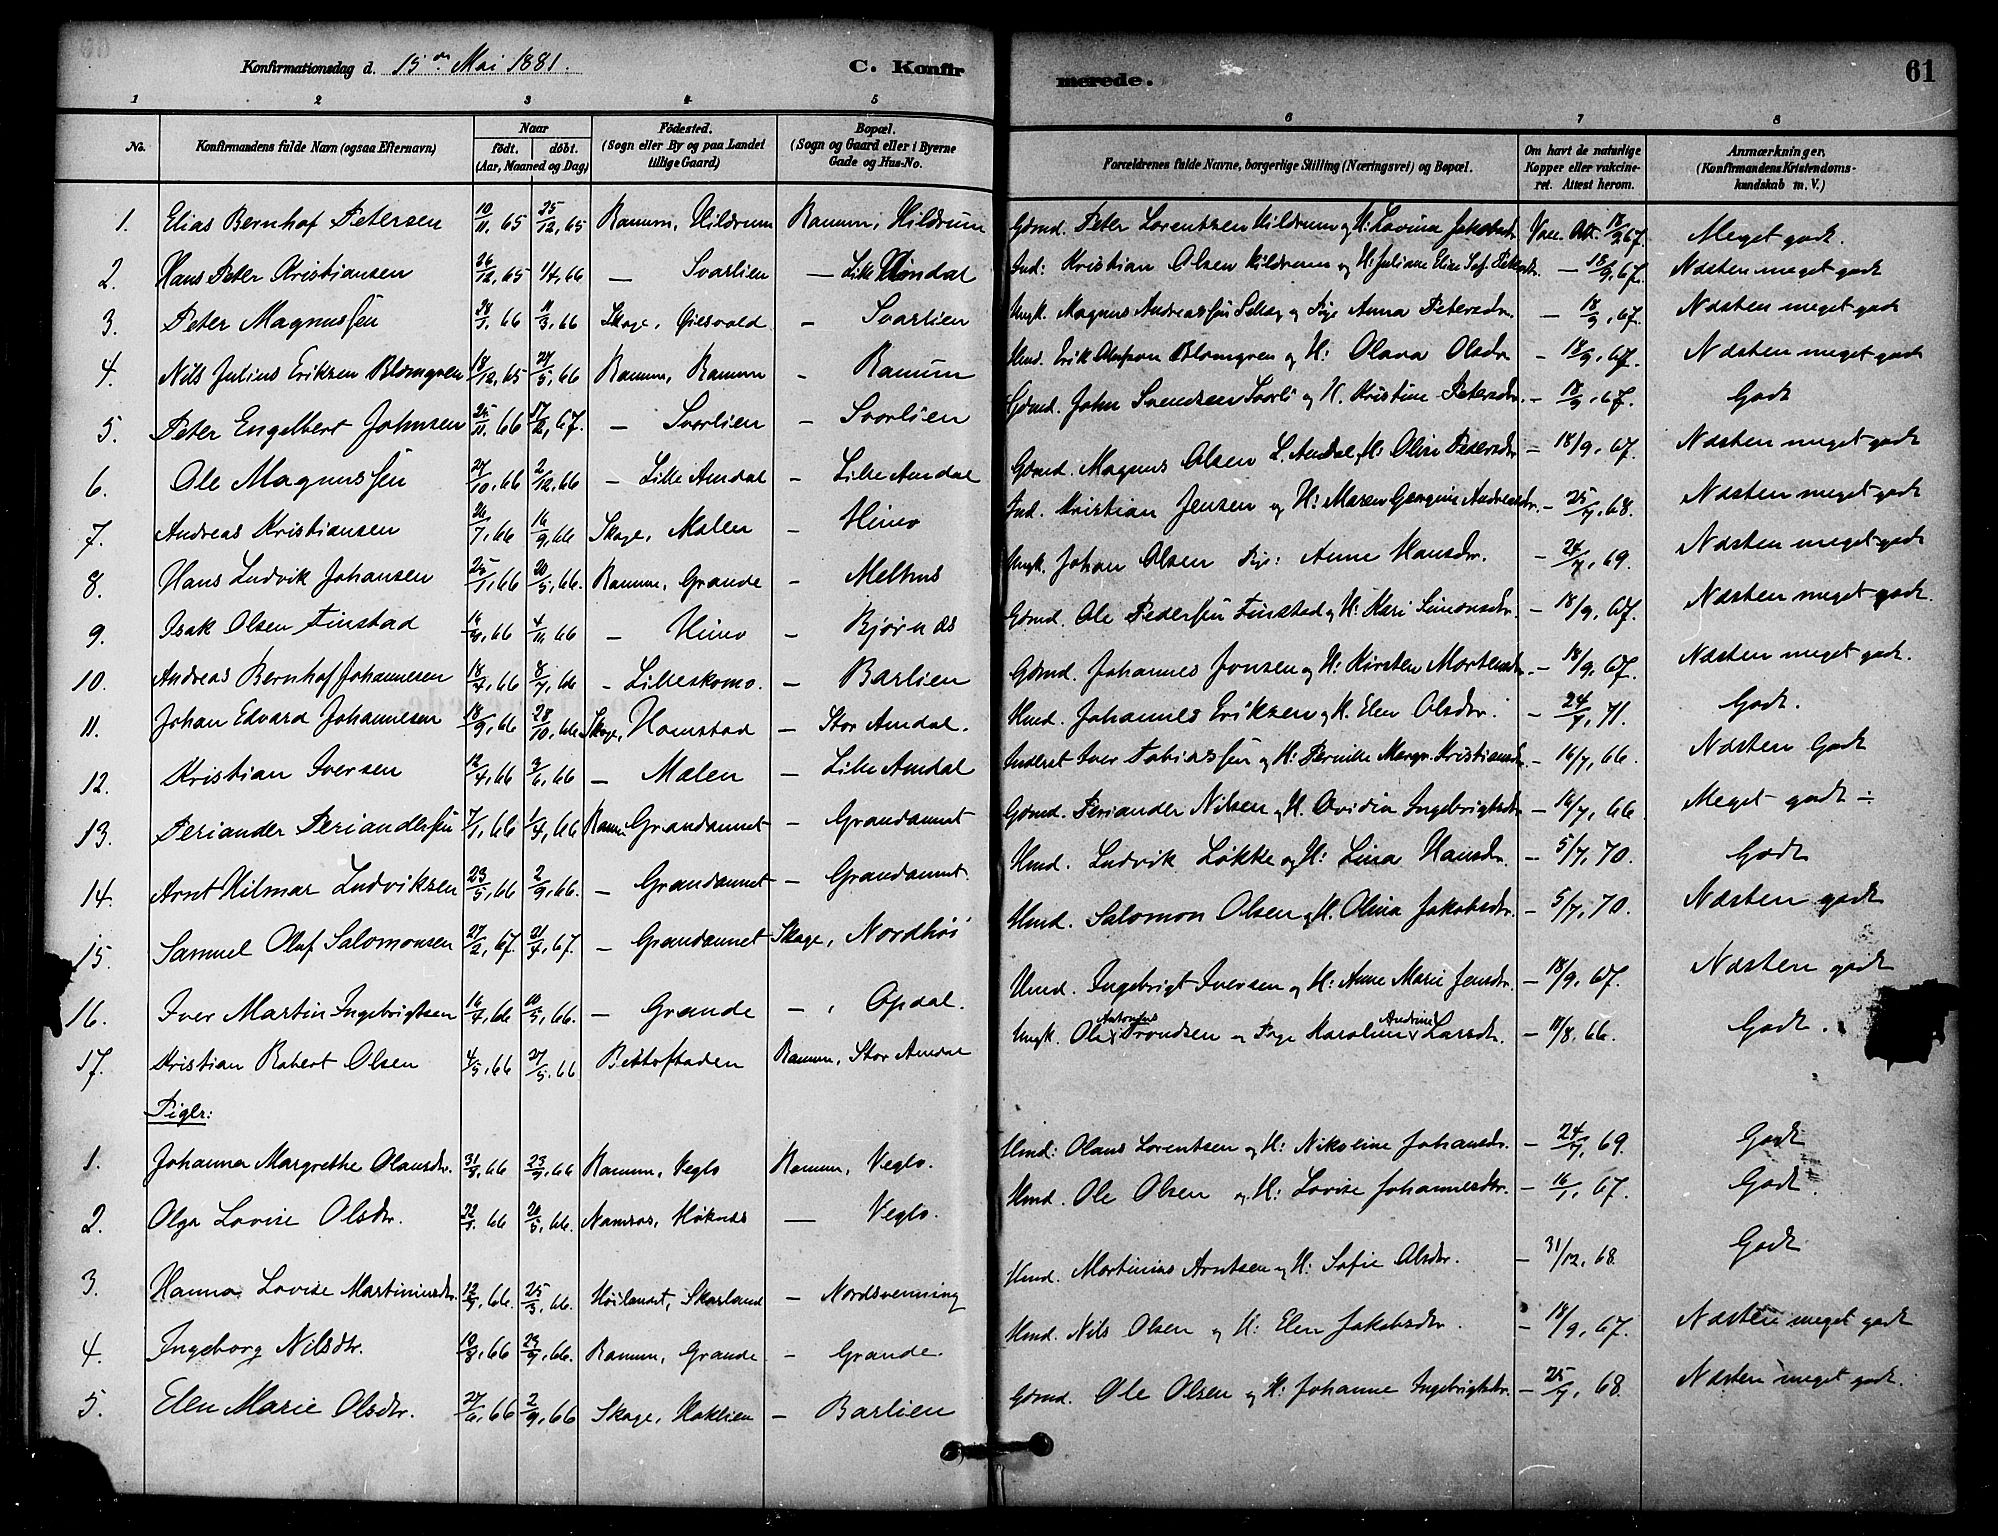 Konfirmationsdag d. 15de Mai 1881. C. Konfirmerede. 61
1 2 3 4 5 6 7 8
No. Konfirmandens fulde Navn (ogsaa Efternavn) Naar födt. döbt. (Aar, Maaned og Dag) Födested. (Sogn eller By og paa Landet tillige Gaard) Bopæl. (Sogn og Gaard eller i Byerne Gade og Hus-No. Forældrenes fulde Navne, borgerlige Stilling (Næringsvei) og Bopæl. Om havt de naturlige Kopper eller vakcineret. Attest herom. Anmærkninger. (Konfirmandens Kristendomskundskab m. V.)
1. Elias Bernhof Petersen 10/11, 65 25/12, 65 Ranum, Hildrum Ranum, Hildrum Gdmd. Peter Lorentzen Hildrum og H: Lovina Jakobsdr. Vacc. Att. 18/9 67. Meget godt.
2. Hans Peter Kristiansen 26/12, 65 1/4, 66 — Svarlien — Lille Amdal Ind: Kristian Olsen Hildrum og H: Juliane Elise Sof. Petersdr. — 18/9, 67. Næsten meget godt
3. Peter Magnussen 28/1, 66 11/3, 66 Skage, Øiesvold — Svarlien Ungk. Magnus Andreassen Selleg og Pige Anna Petersdr. — 18/9, 67. Næsten meget godt
4. Nils Julius Eriksen Blomgren 18/12, 65 27/5, 66 Ranum, Ranum — Ranum Hmd. Erik Olufson Blomgren og H: Olava Olsdr. — 18/9, 67. Næsten meget godt
5. Peter Engelbert Johnsen 25/11, 66 17/2, 67. — Svarlien — Svarlien Gdmd. John Svendsen Svarli og H. Kristine Petersdr. — 18/9, 67. Godt
6. Ole Magnussen 27/10, 66 2/12, 66 — Lille Amdal — Lille Amdal Gdmd. Magnus Olsen L. Amdal, H: Oline Pedersdr. — 18/9, 67. Næsten meget godt
7. Andreas Kristiansen 26/7, 66 16/9, 66 Skage, Mælen — Himo Ind. Kristian Jensen og H: Maren Georgine Andreasdr. — 25/7, 68. Næsten meget godt
8. Hans Ludvik Johansen 25/1, 66 20/5, 66. Ranum, Grande — Melhus Ungk. Johan Olsen Pige: Anne Hansdr. — 24/7, 69. Næsten meget godt
9. Isak Olsen Finstad 66 4/11, 66 — Himo — Bjørnæs Gdmd. Ole Pedersen Finstad og H: Kari Simonsdr. — 18/9, 67. Næsten meget godt.
10. Andreas Bernhof Johannesen 18/4, 66 8/7, 66 — Lilleskomo. — Barlien Gdmd. Johannes Jonsen og H: Kirsten Mortensdr. — 18/9, 67. Næsten meget godt.
11. Johan Edvard Johannesen 18/9, 66 28/10, 66. Skage, Homstad — Stor Amdal. Hmd. Johannes Eriksen og H. Elen Olsdr. — 24/7, 71. Godt.
12. Kristian Iversen 16/4, 66 3/6, 66 — Mælen — Lille Amdal Inderst Iver Tobiassen og H: Pernille Margr. Kristiansdr. — 16/7, 66. Næsten Godt
13. Periander Periandersen 7/1, 66 1/4, 66 Ranum Grandannet — Grandannet Gdmd. Periander Nilsen og H. Ovidia Ingebrigtsdr. — 16/7, 66. Meget godt ÷
14. Arnt Hilmar Ludviksen 23/5, 66 2/9, 66. — Grandannet — Grandannet. Hmd. Ludvik Løkke og H: Lina Hansdr. — 5/7, 70. Godt
15. Samuel Oluf Salomonsen 27/2, 67. 21/4, 67. — Grandannet Skage, Nordhøi Hmd. Salomon Olsen og H. Olina Jakobsdr. — 5/7, 70. Næsten godt
16. Iver Martin Ingebrigtsen 16/4, 66 10/5, 66. — Grande — , Opdal. Hmd. Ingebrigt Iversen og H: Anne Marie Jensdr. — 18/9, 67. Næsten godt
17. Kristian Robert Olsen 4/5, 66 27/5, 66 Betstaden Ranum, Stor Amdal Ungk. Ole Antonius Trondsen og Pige Karoline Andrine Larsdr. — 11/8, 66. Godt.
Piger:
1. Johanna Margrethe Olausdr. 31/8, 66 23/9, 66 Ranum, Veglo Ranum, Veglo. Hmd: Olaus Lorentsen og H: Nikoline Johansdr. — 24/7, 69. Godt
2. Olga Lovise Olsdtr. 66 20/5, 66. Namsos, Høknes — Veglo. Hmd. Ole Olsen og H: Lovise Johannesdr. — 16/1, 67. Godt.
3. Hanna Lovise Martiniusdr. 66. 25/3, 66. Høilandet, Skarland — Nordsvenning Hmd. Martinius Arntsen og H: Sofie Olsdr. — 31/12, 68. Godt
4. Ingeborg Nilsdtr. 10/8, 66 23/9, 66. Ranum, Grande. — Grande. Hmd. Nils Olsen og H: Elen Jakobsdr. — 18/9, 67. Næsten meget godt
5. Elen Marie Olsdtr. 27/6, 66 2/9, 66 Skage, Haklien — Barlien Gdmd. Ole Olsen og H: Johanne Ingebrigtsdr. — 25/7, 68. Næsten meget godt.